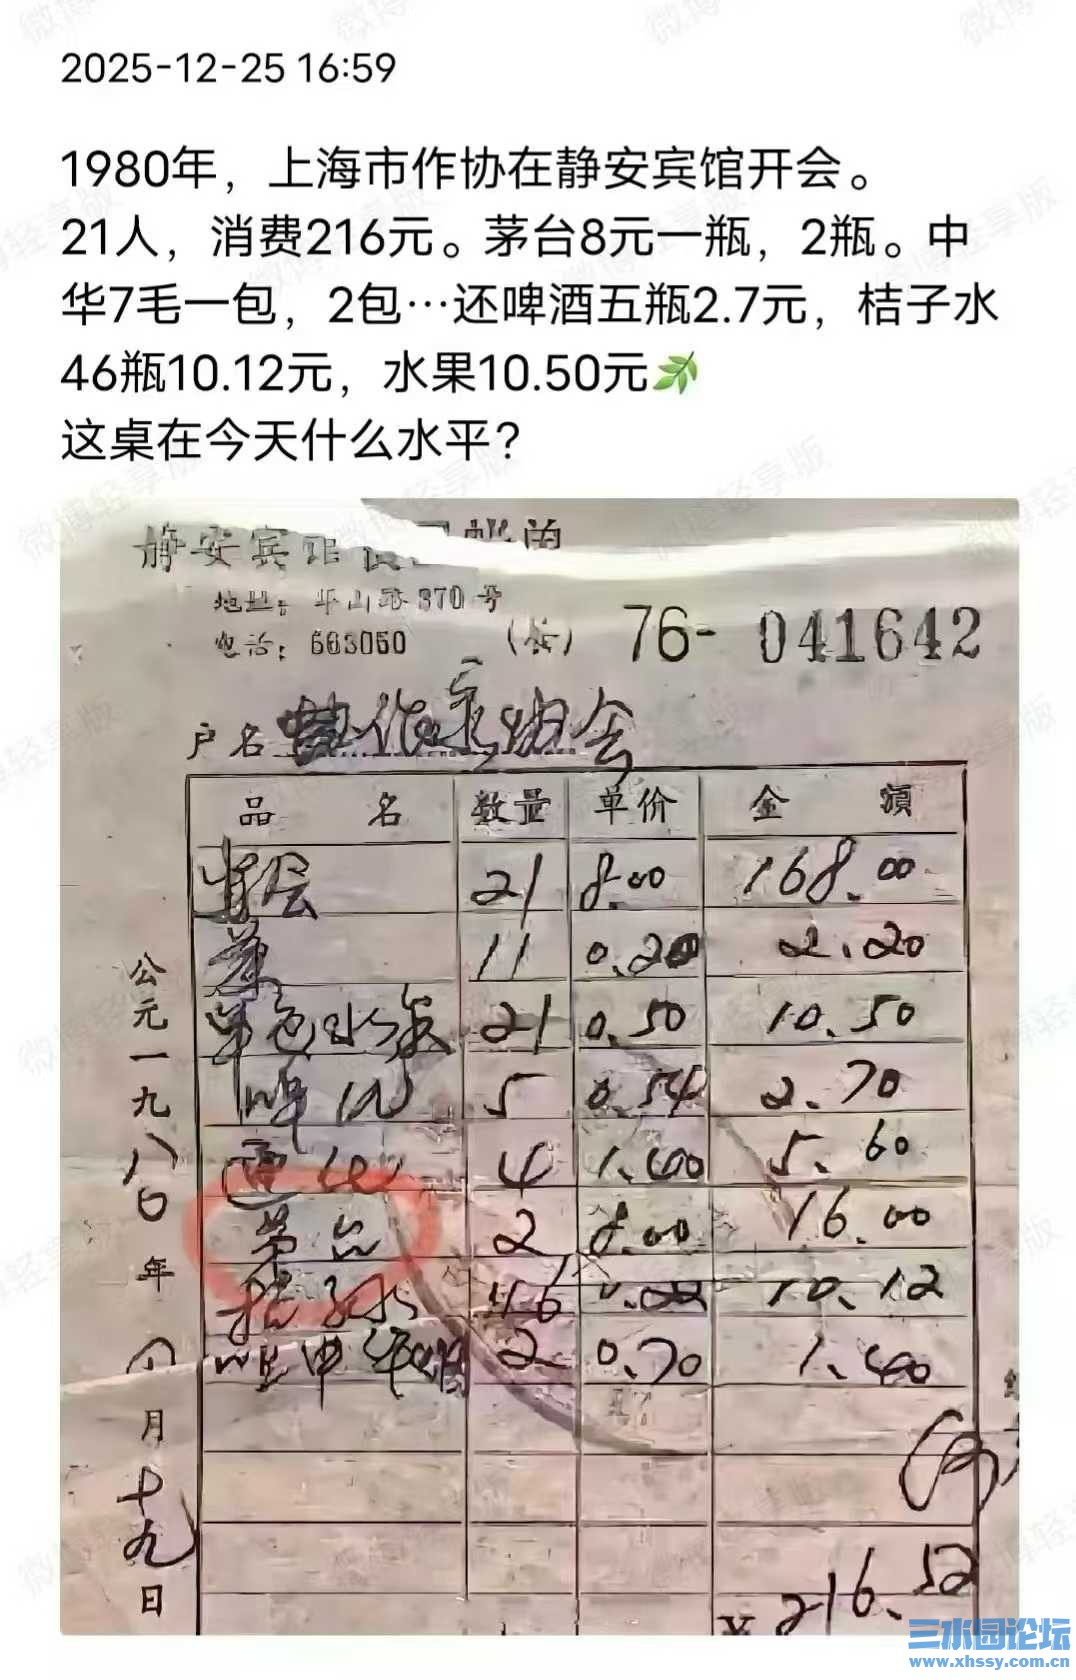 2025-12-25 16:59
1980年，上海市作协在静安宾馆开会。
21人，消费216元。茅台8元一瓶，2瓶。中
华7毛一包，2包…还啤酒五瓶2.7元，桔子水
46瓶10.12元，水果10.50元🌿
这桌在今天什么水平？
静安宾馆 帐单
地址：华山路370号
电话：563050
76- 041642
户名
品名 数量 单价 金額
宴会 21 8.00 168.00
茶 11 0.20 2.20
单包水果 21 0.50 10.50
啤酒 5 0.54 2.70
4 1.40 5.60
茅台 2 8.00 16.00
桔子水 46 0.22 10.12
中华烟 2 0.70 1.40
¥216.52
公元一九八〇年 月十九日
三水园论坛
www.xhssy.com.cn
微博轻享版